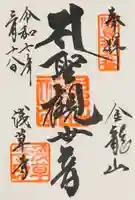 奉拝
金龍山
聖観世音
浅草寺
令和七年
月十八日